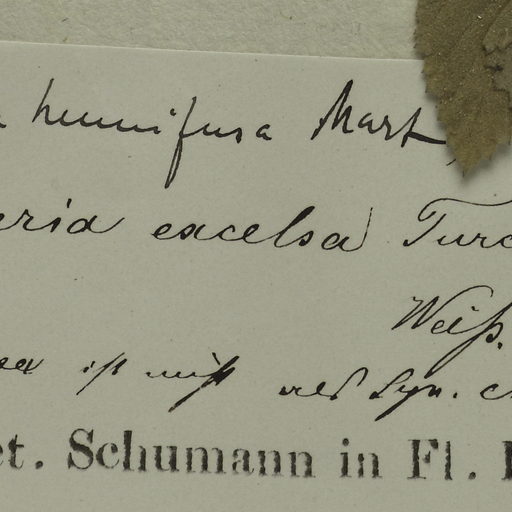 humifusa Mart
eria excelsa Turc
Weiß.
ist nicht als Syn.
et. Schumann in Fl.